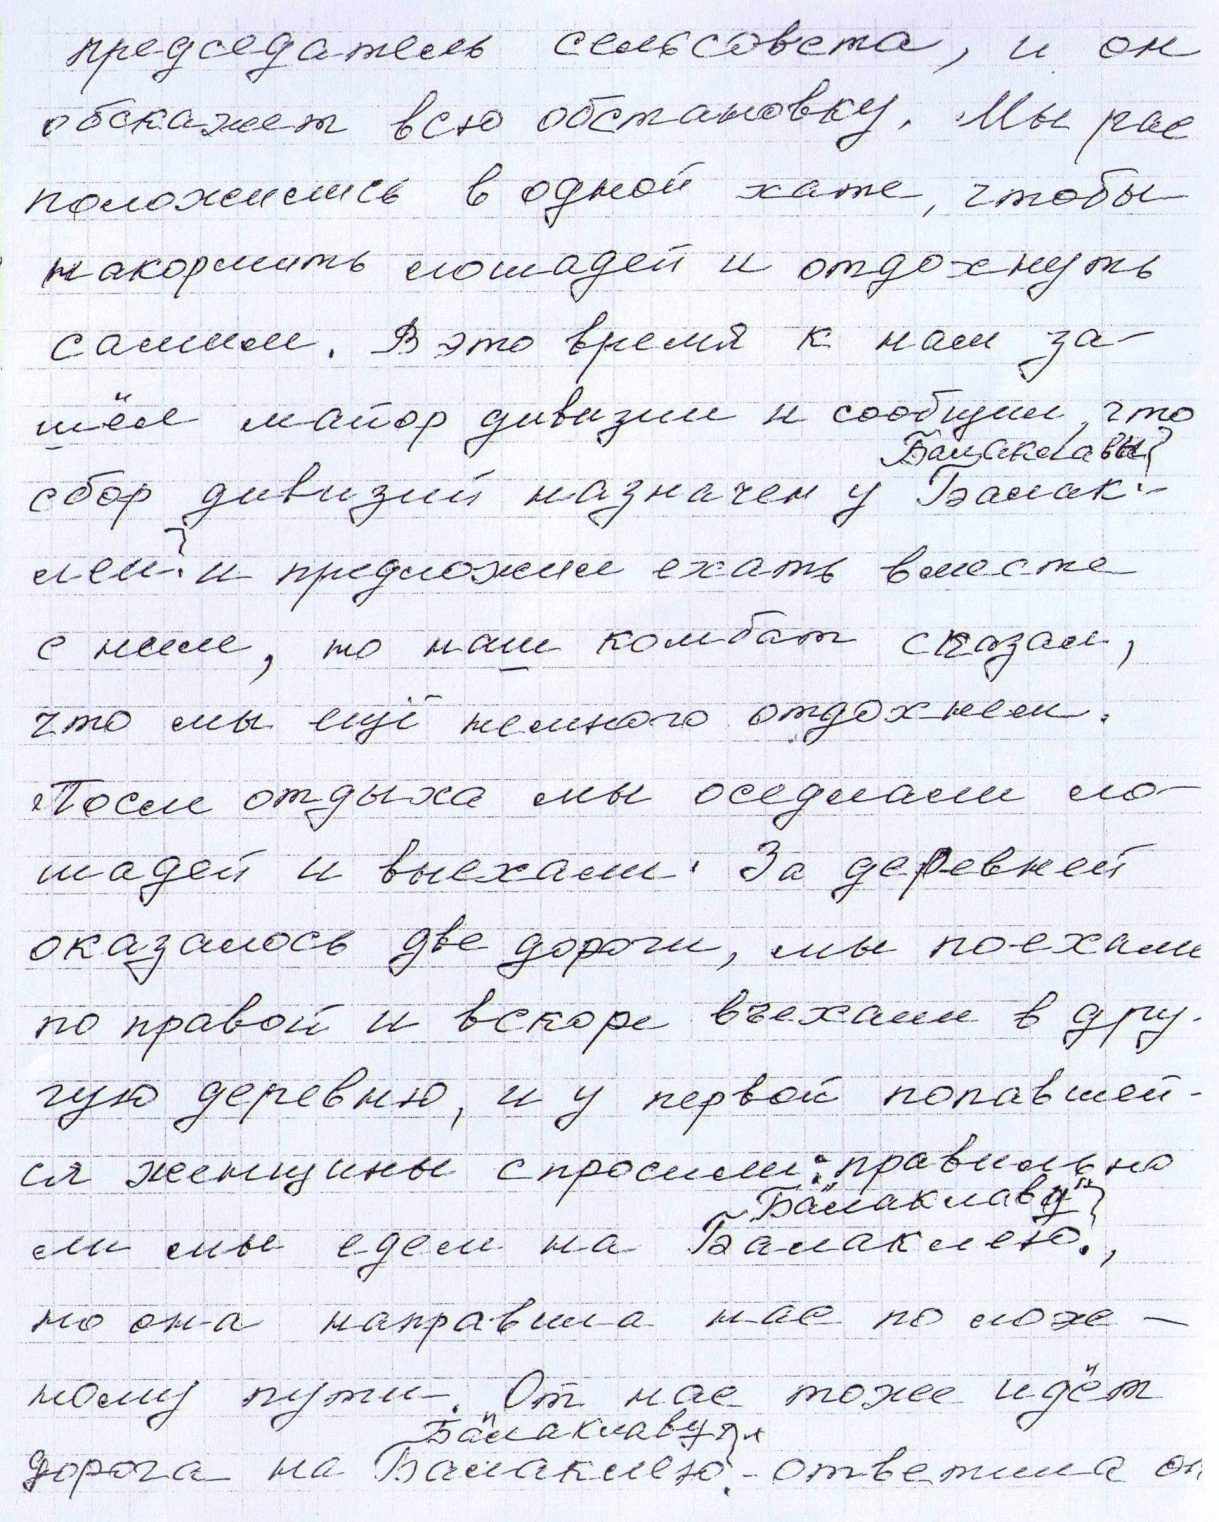 председатель сельсовета, и он
обскажет всю обстановку. Мы рас
положились в одной хате, чтобы
накормить лошадей и отдохнуть
самим. В это время к нам за-
шёл майор дивизии и сообщил, что
Балаклавы}
сбор дивизий назначен у Балак-
леи. и предложил ехать вместе
с ним, но наш комбат сказал,
что мы ещё немного отдохнем.
После отдыха мы оседлали ло-
шадей и выехали. За деревней
оказалось две дороги, мы поехали
по правой и вскоре въехали в дру-
гую деревню, и у первой попавшей-
ся женщины спросили: правильно
"Балаклаву"}
ли мы едем на Балаклею.,
но она направила нас по лож-
ному пути. От нас тоже идёт
Балаклаву
дорога на Балаклею - ответила он